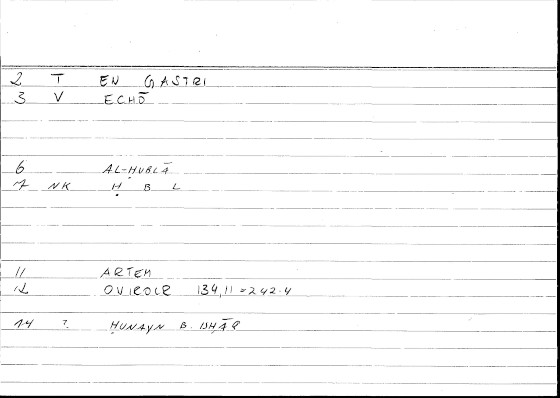 2 T EN GASTRI
3 V ECHŌ
6 AL-ḤUBLĀ
7 NK Ḥ B L
11 ARTEM
12 OVIROCR 134,11 = 242.4
14 ? ḤUNAYN B. ISḤĀQ